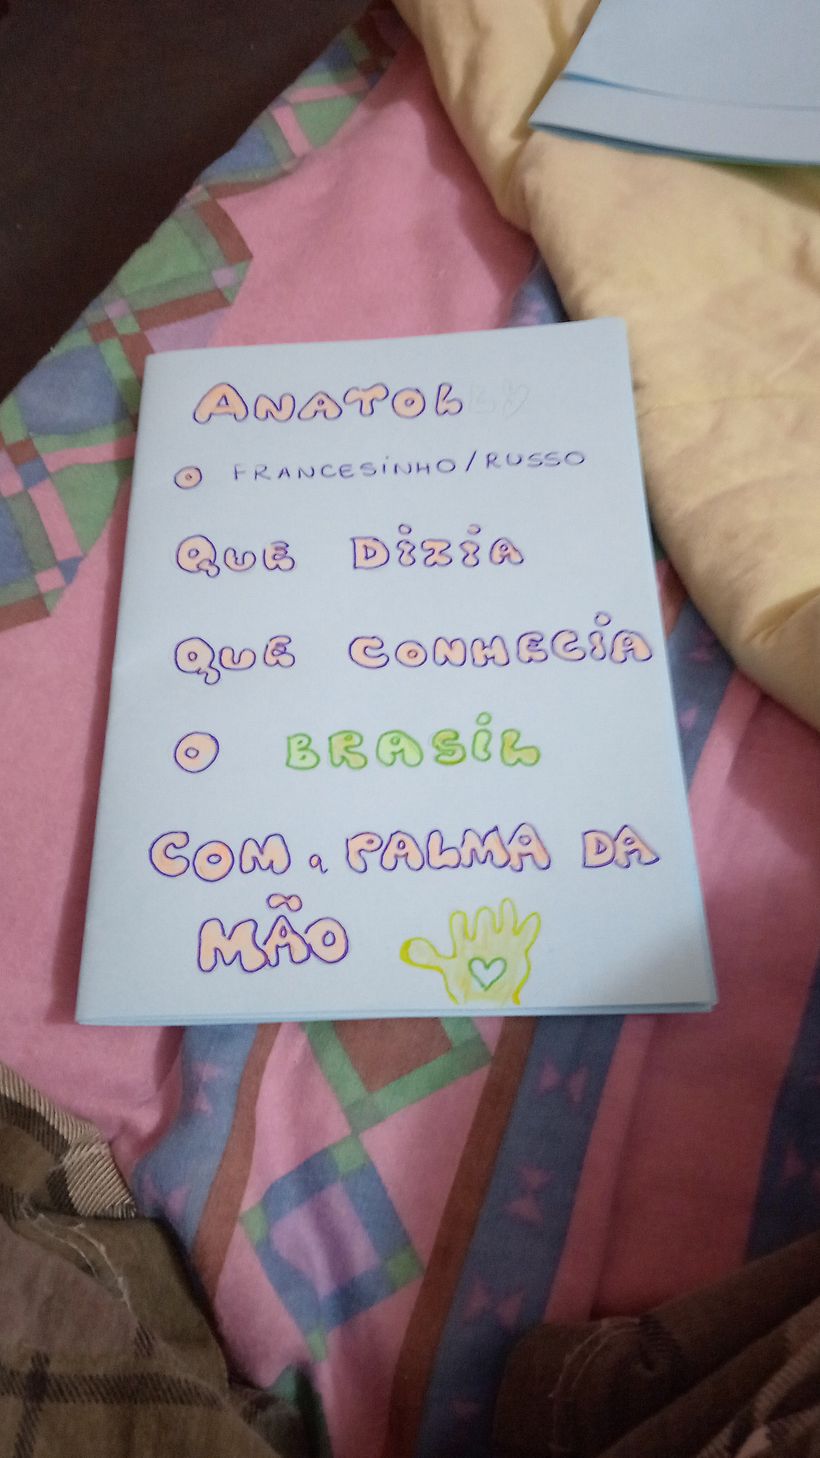 ANATOL
O FRANCESINHO/RUSSO
QUE DIZIA
QUE CONHECIA
O BRASIL
COM a PALMA DA
MÃO